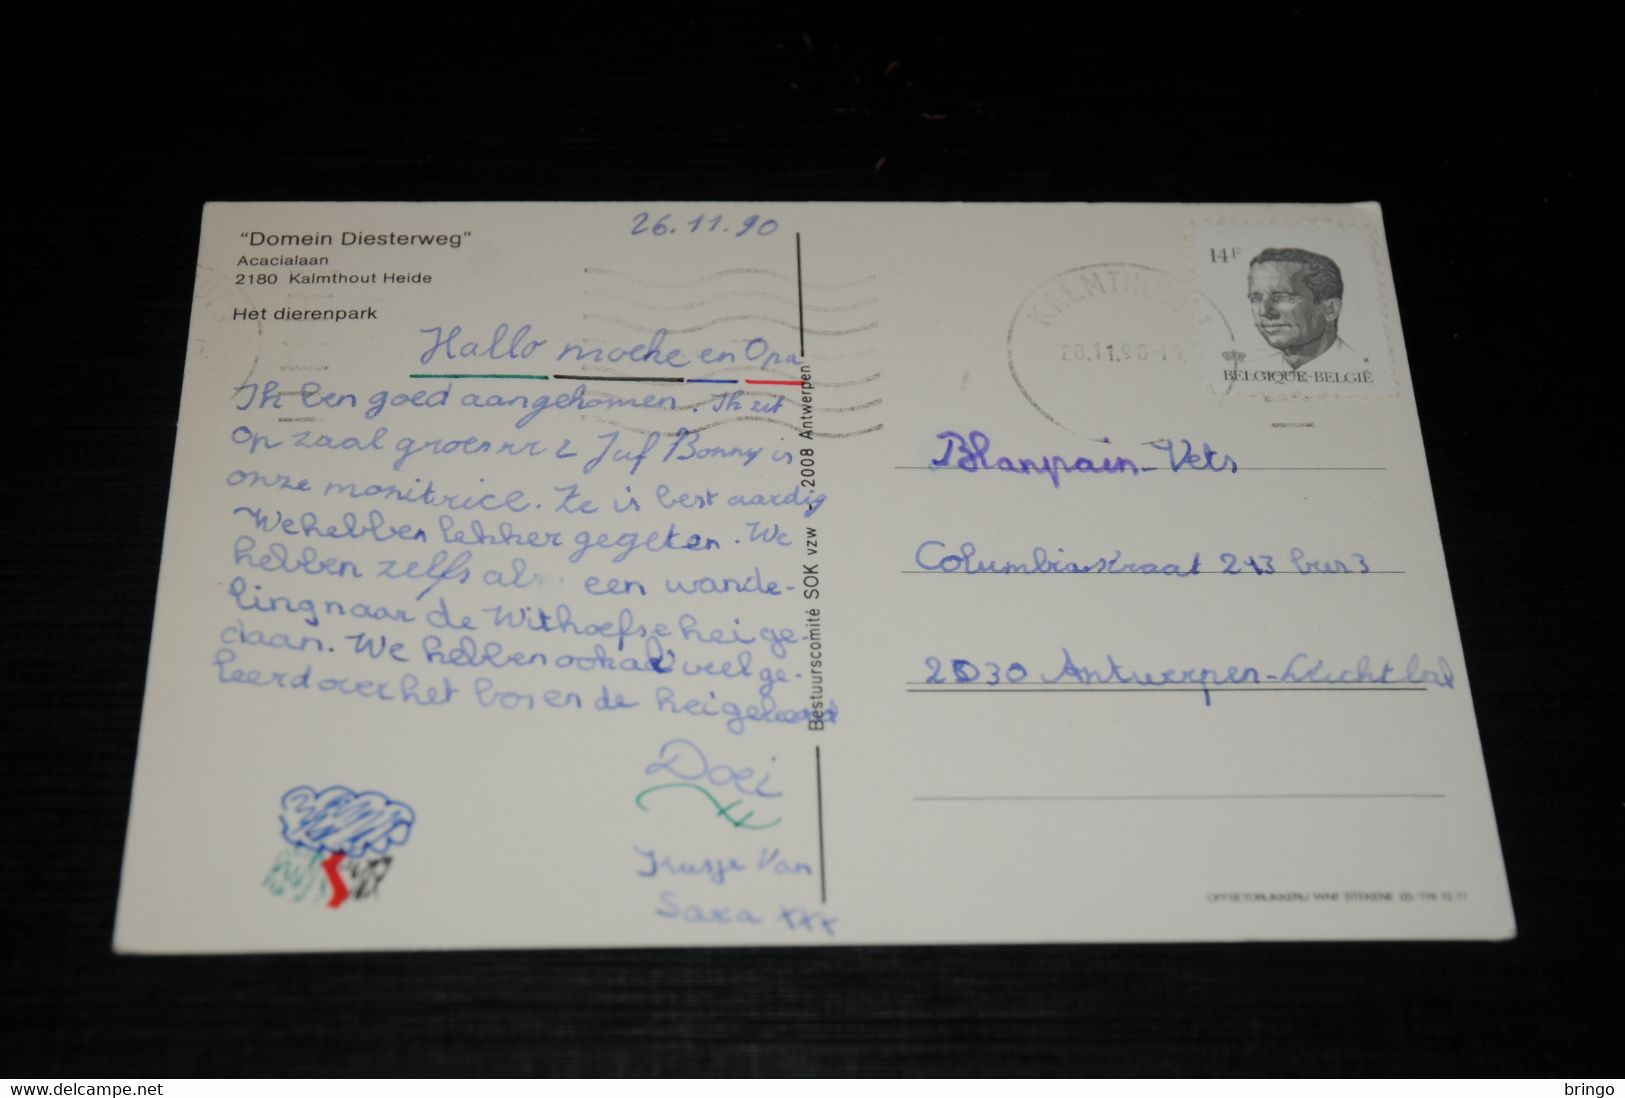 "Domein Diesterweg"
Acacialaan
2180 Kalmthout Heide
Het dierenpark
26.11.90
Hallo moeke en Opa
Ik ben goed aangekomen. Ik zit
op zaal groes nr 2 Juf Bonny is
onze monitrice. Ze is best aardig
We hebben lekker gegeten. We
hebben zelfs al een wande-
ling naar de Withoefse hei ge-
daan. We hebben ook al veel ge-
leerd over het bos en de hei geleerd
Doei
Kusje Van
Sara xxx
Bestuurscomité SOK vzw - 2008 Antwerpen
KALMTHOUT 1
28.11.90-13
14F
BELGIQUE-BELGIË
Blanpain-Vets
Columbiastraat 213 bus 3
2030 Antwerpen-Luchtbal
OFFSETDRUKKERIJ WNF STEKENE 03/779 72 77
delcampe.net
bringo